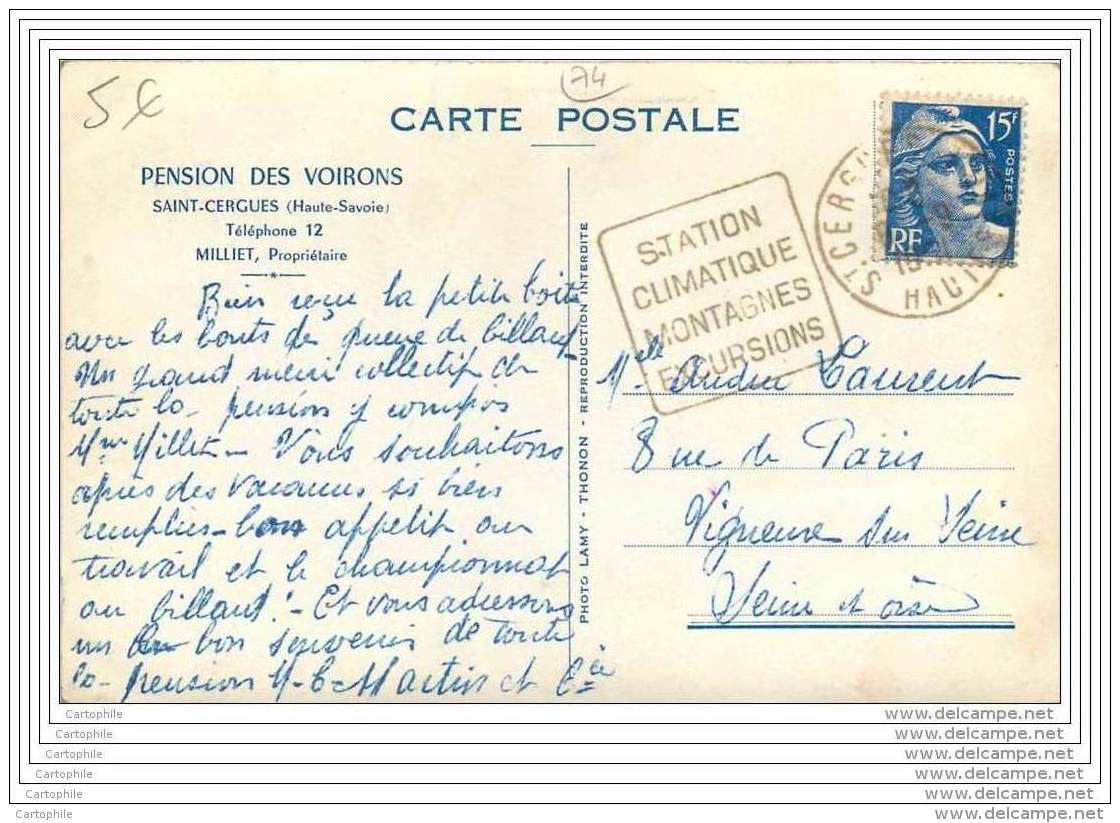 5€
74
CARTE POSTALE
PENSION DES VOIRONS
SAINT-CERGUES (Haute-Savoie)
Téléphone 12
MILLIET, Propriétaire
Bien reçu la petite boite
avec les bouts de queue de billard
Un grand merci collectif de
toute la pension y compris
Mme Milliet – Vous souhaitons
après des vacances si bien
remplies – bon appétit au
travail et le championnat
au billard ! – Et vous adressons
un bon souvenir de toute
la pension M-C-Martin et Cie
PHOTO LAMY - THONON - REPRODUCTION INTERDITE
STATION
CLIMATIQUE
MONTAGNES
EXCURSIONS
ST CERGUES
HAUTE
15F
POSTES
RF
Mlle Andrée Laurent
8 rue de Paris
Vigneux sur Seine
Seine et oise
Cartophile
www.delcampe.net
Cartophile
www.delcampe.net
Cartophile
www.delcampe.net
Cartophile
www.delcampe.net
Cartophile
www.delcampe.net
Cartophile
www.delcampe.net